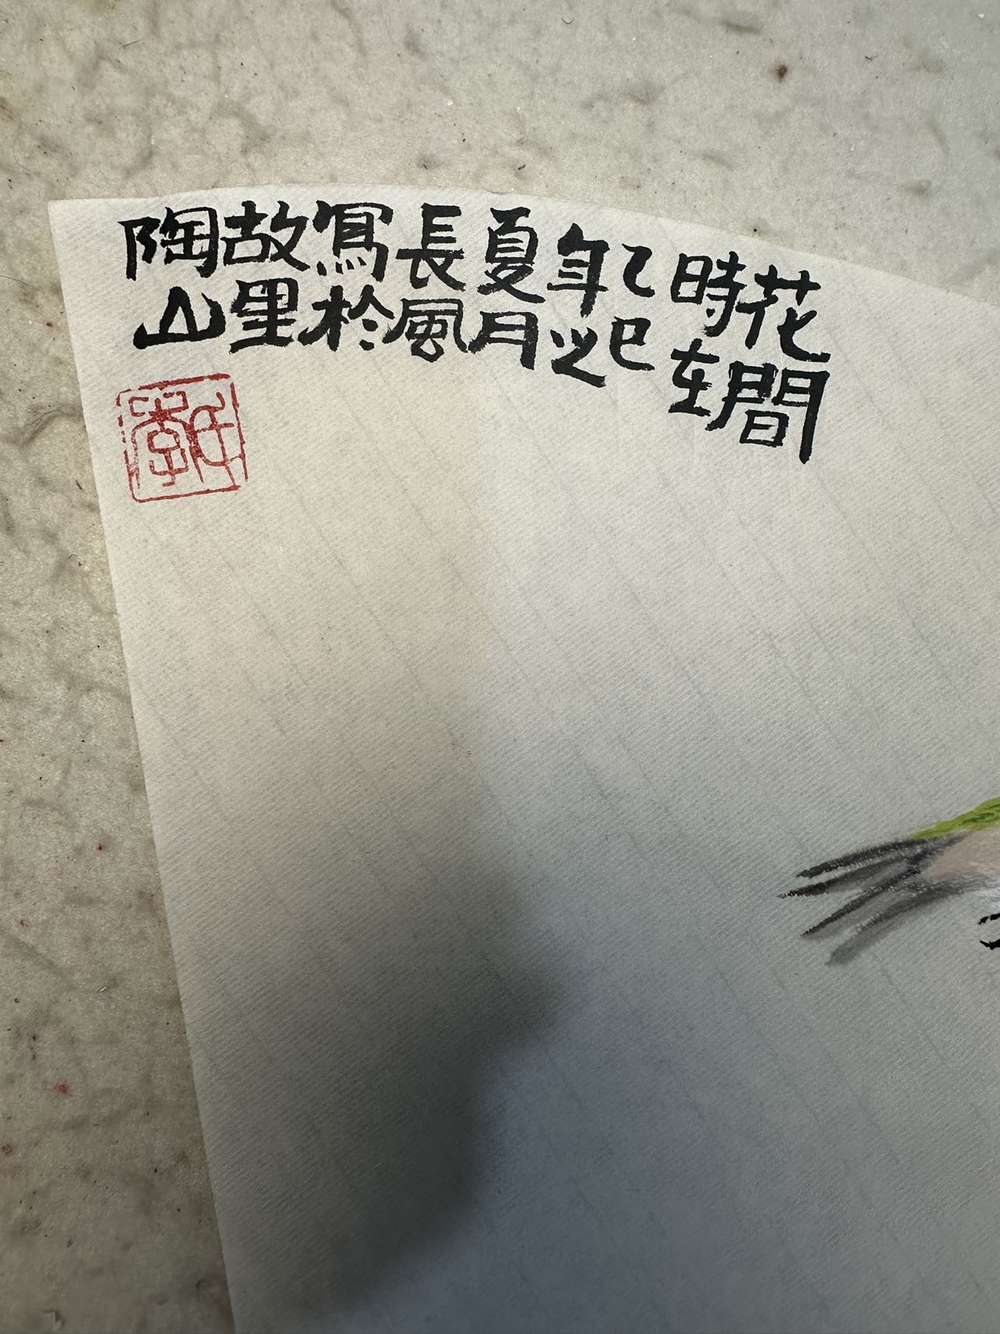 花間
時在
乙巳
年之
夏月
長風
寫於
故里
陶山
李氏